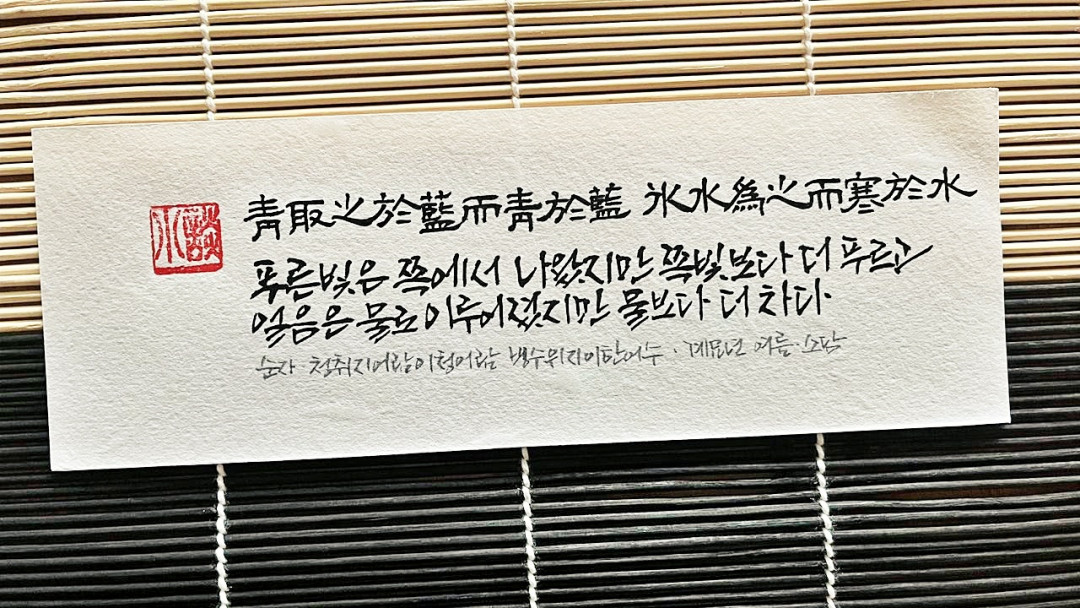 青取之於藍而青於藍 氷水為之而寒於水
푸른빛은 쪽에서 나왔지만 쪽빛보다 더 푸르고
얼음은 물로 이루어졌지만 물보다 더 차다
순자 · 청취지어람이청어람 빙수위지이한어수 · 계묘년 여름 ·